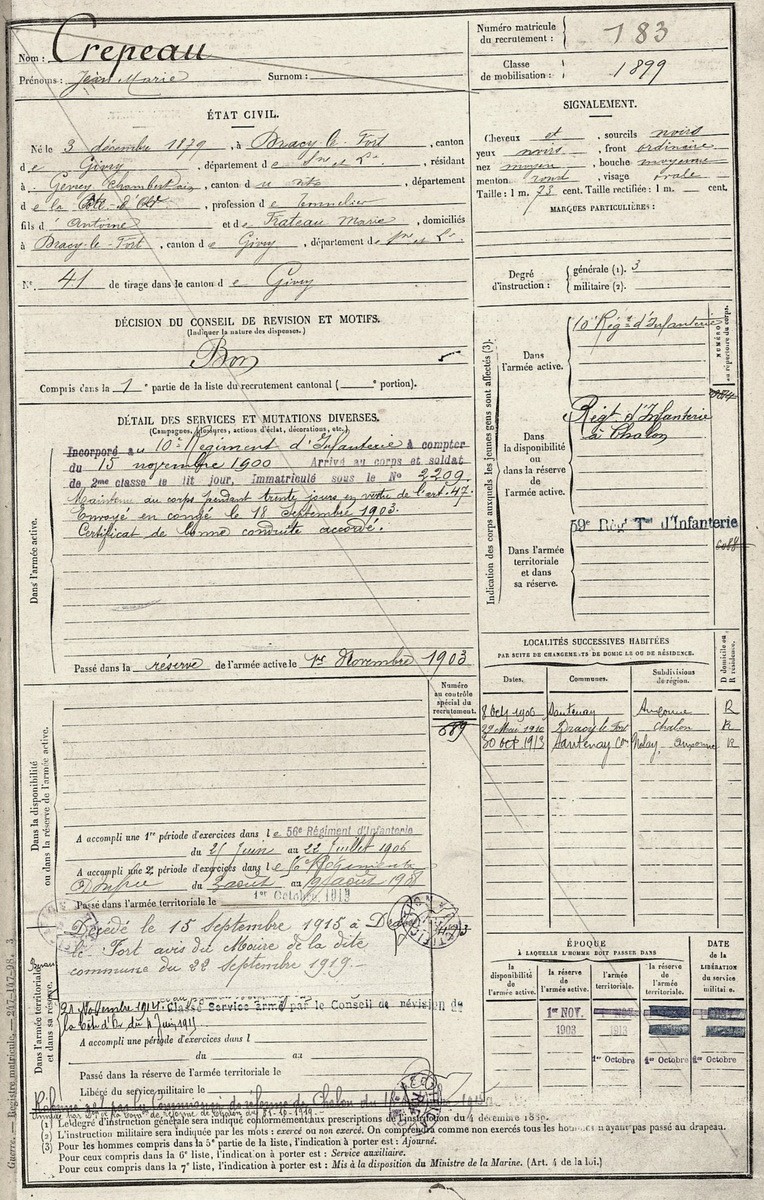 Nom : Crepeau
Prénoms : Jean Marie Surnom :
Numéro matricule du recrutement : 183
Classe de mobilisation : 1899
ÉTAT CIVIL.
Né le 3 décembre 1879, à Dracy-le-Fort, canton
de Givry, département de Sne et Le, résidant
à Gevrey Chambertain, canton du dit, département
de la Côte-d'Or, profession de Tonnelier
fils d' Antoine et de Frateau Marie, domiciliés
à Dracy-le-Fort, canton de Givry, département de Sne et Le.
N° 41 de tirage dans le canton de Givry
SIGNALEMENT.
Cheveux et, sourcils noirs
yeux noirs, front ordinaire
nez moyen, bouche moyenne
menton rond, visage ovale
Taille : 1 m. 73 cent. Taille rectifiée : 1 m. cent.
MARQUES PARTICULIÈRES :
Degré d'instruction : générale (1). 3
militaire (2).
DÉCISION DU CONSEIL DE REVISION ET MOTIFS.
(Indiquer la nature des dispenses.)
Bon
Compris dans la 1e partie de la liste du recrutement cantonal ( e portion).
DÉTAIL DES SERVICES ET MUTATIONS DIVERSES.
(Campagnes, blessures, actions d'éclat, décorations, etc.)
Dans l'armée active.
Incorporé au 10e Régiment d'Infanterie à compter
du 15 novembre 1900 Arrivé au corps et soldat
de 2me classe le dit jour, Immatriculé sous le No 2209.
Maintenu au corps pendant trente jours en vertu de l'art. 47.
Envoyé en congé le 18 Septembre 1903.
Certificat de bonne conduite accordé.
Passé dans la réserve de l'armée active le 1er Novembre 1903
Indication des corps auxquels les jeunes gens sont affectés (3).
NUMÉRO au répertoire du corps.
Dans l'armée active.
10e Régt d'Infanterie
Dans la disponibilité ou dans la réserve de l'armée active.
Régt d'Infanterie
à Chalon
Dans l'armée territoriale et dans sa réserve.
59e Régt Tal d'Infanterie
LOCALITÉS SUCCESSIVES HABITÉES
PAR SUITE DE CHANGEMENTS DE DOMICILE OU DE RÉSIDENCE.
Dates. Communes. Subdivisions de région. D domicile ou R résidence.
8 oct 1906 Santenay Auxonne R
22 Mai 1910 Dracy le Fort Chalon R
30 oct 1913 Santenay Con Nolay Auxonne R
Numéro au contrôle spécial du recrutement.
689
Dans la disponibilité ou dans la réserve de l'armée active.
A accompli une 1re période d'exercices dans le 56e Régiment d'Infanterie
du 25 Juin au 22 Juillet 1906
A accompli une 2e période d'exercices dans le 56e Régiment
du 3 août au 19 août 1908
Passé dans l'armée territoriale le 1er Octobre 1913
Dans l'armée territoriale et dans sa réserve.
Décédé le 15 Septembre 1915 à Dracy
le Fort avis du Maire de la dite
commune du 22 Septembre 1919.
21 Novembre 1914. Classé Service armé par le Conseil de révision de
la Côte d'Or du 4 Juin 1915
A accompli une période d'exercices dans l
du au
Passé dans la réserve de l'armée territoriale le
Libéré du service militaire le
ÉPOQUE
À LAQUELLE L'HOMME DOIT PASSER DANS
la disponibilité de l'armée active. la réserve de l'armée active. l'armée territoriale. la réserve de l'armée territoriale.
DATE DE LA LIBÉRATION du service militaire.
1er NOV. 1903
1913
1er Octobre 1er Octobre 1er Octobre
(1) Le degré d'instruction générale sera indiqué conformément aux prescriptions de l'instruction du 4 décembre 1889.
(2) L'instruction militaire sera indiquée par les mots : exercé ou non exercé. On comprendra comme non exercés tous les hommes n'ayant pas passé au drapeau.
(3) Pour les hommes compris dans la 5e partie de la liste, l'indication à porter est : Ajourné.
Pour ceux compris dans la 6e liste, l'indication à porter est : Service auxiliaire.
Pour ceux compris dans la 7e liste, l'indication à porter est : Mis à la disposition du Ministre de la Marine. (Art. 4 de la loi.)
Guerre. — Registre matricule. — 247-147-98. 3.